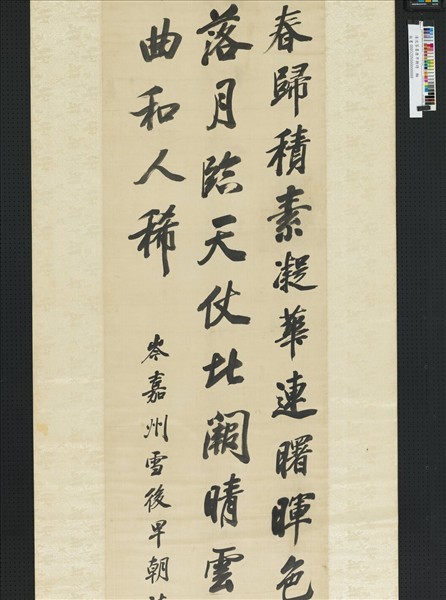 春歸積素凝華連曙暉色
落月臨天仗北闕晴雲
曲和人稀
岑嘉州雪後早朝